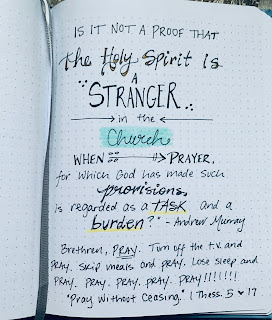 IS IT NOT A PROOF THAT
the Holy Spirit is
A
STRANGER
in the
Church
WHEN PRAYER,
for which God has made such
provisions,
is regarded as a TASK and a
burden?" - Andrew Murray
Brethren, PRAY. Turn off the t.v. and
PRAY. Skip meals and PRAY. Lose sleep and
PRAY. PRAY. PRAY. PRAY. PRAY!!!!!!!
"Pray Without Ceasing." 1 Thess. 5 ♥ 17